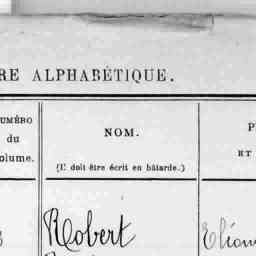 RE ALPHABÉTIQUE.
UMÉRO
du
olume.
NOM.
(Il doit être écrit en bâtarde.)
P
ET
Robert